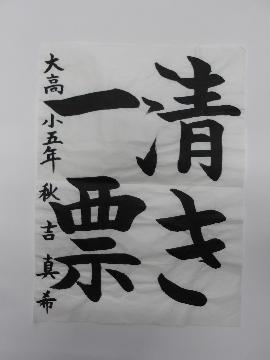 清き
一票
大高小五年秋吉真希